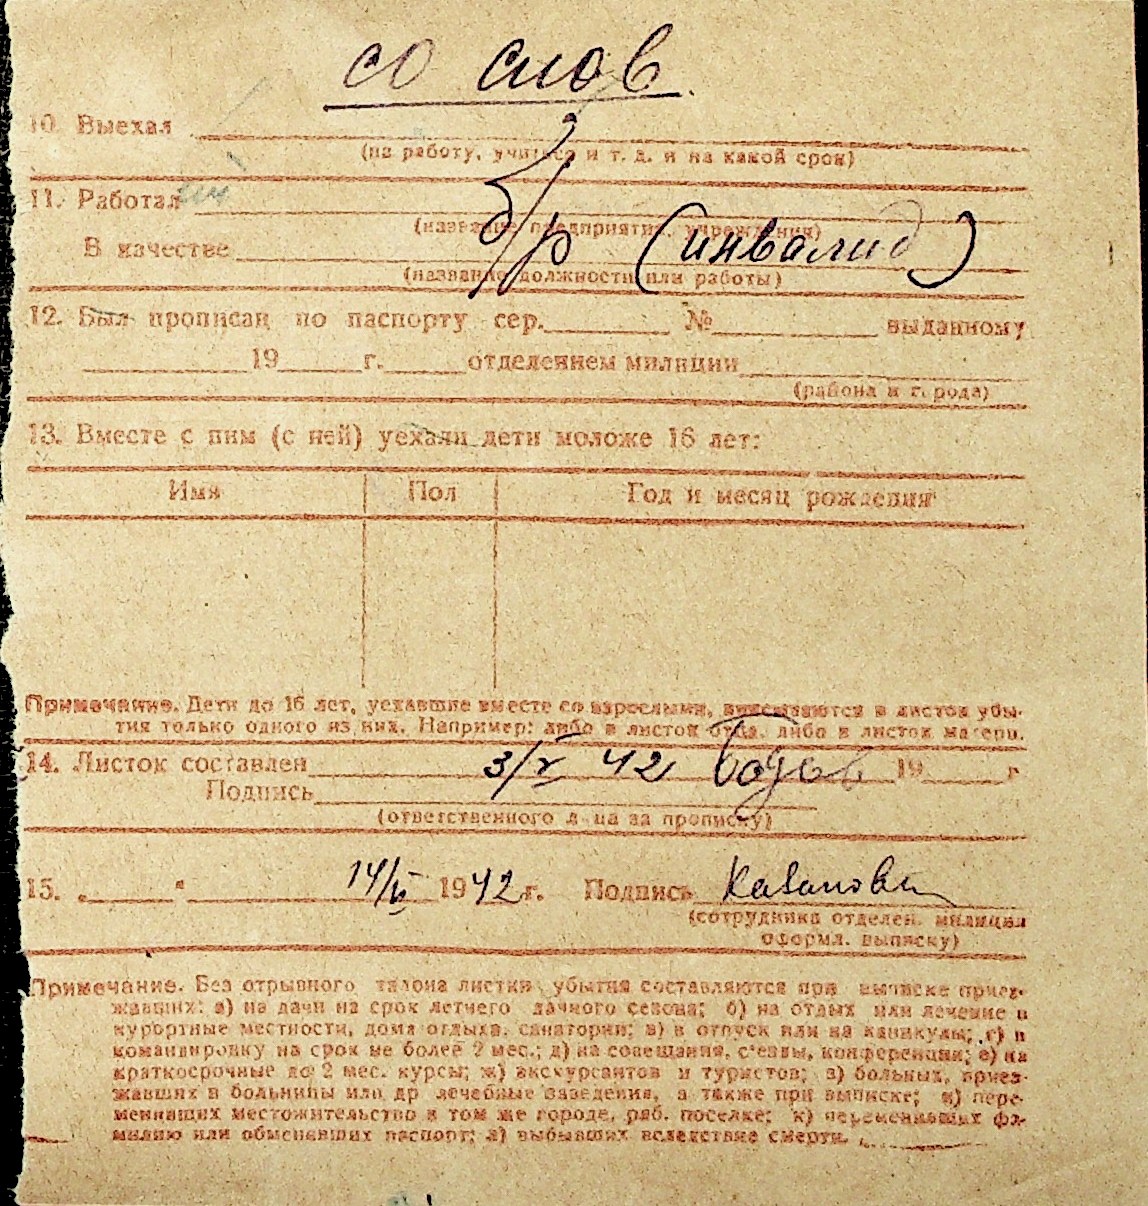 со слов
10. Выехал
(на работу, учиться и т. д. и на какой срок)
11. Работал
(название предприятия, учреждения)
б/р (инвалид)
В качестве
(название должности или работы)
12. Был прописан по паспорту сер. № выданному
19 г. отделением милиции
(района и города)
13. Вместе с ним (с ней) уехали дети моложе 16 лет:
Имя Пол Год и месяц рождения
Примечание. Дети до 16 лет, уехавшие вместе со взрослыми, вписываются в листок убы-
тия только одного из них. Например: либо в листок отца, либо в листок матери.
14. Листок составлен 3/V 42 19 г
Подпись
(ответственного лица за прописку)
15. „ “ 14/ 1942 г. Подпись
(сотрудника отделен. милиции
оформл. выписку)
Примечание. Без отрывного талона листки убытия составляются при выписке приез-
жавших: а) на дачи на срок летнего дачного сезона; б) на отдых или лечение в
курортные местности, дома отдыха, санатории; в) в отпуск или на каникулы; г) в
командировку на срок не более 2 мес.; д) на совещания, съезды, конференции; е) на
краткосрочные до 2 мес. курсы; ж) экскурсантов и туристов; з) больных, приез-
жавших в больницы или др лечебные заведения, а также при выписке; и) пере-
менивших местожительство в том же городе, раб. поселке; к) переменивших фа-
милию или обменявших паспорт; л) выбывших вследствие смерти.